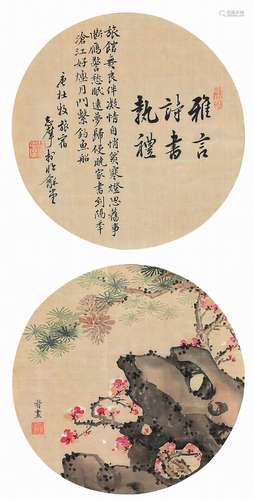 雅言
詩書
執禮
旅館無良伴凝情自悄然寒燈思舊事
斷鴈警愁眠遠夢歸侵曉家書到隔年
滄江好煙月門繫釣魚船
唐杜牧旅宿